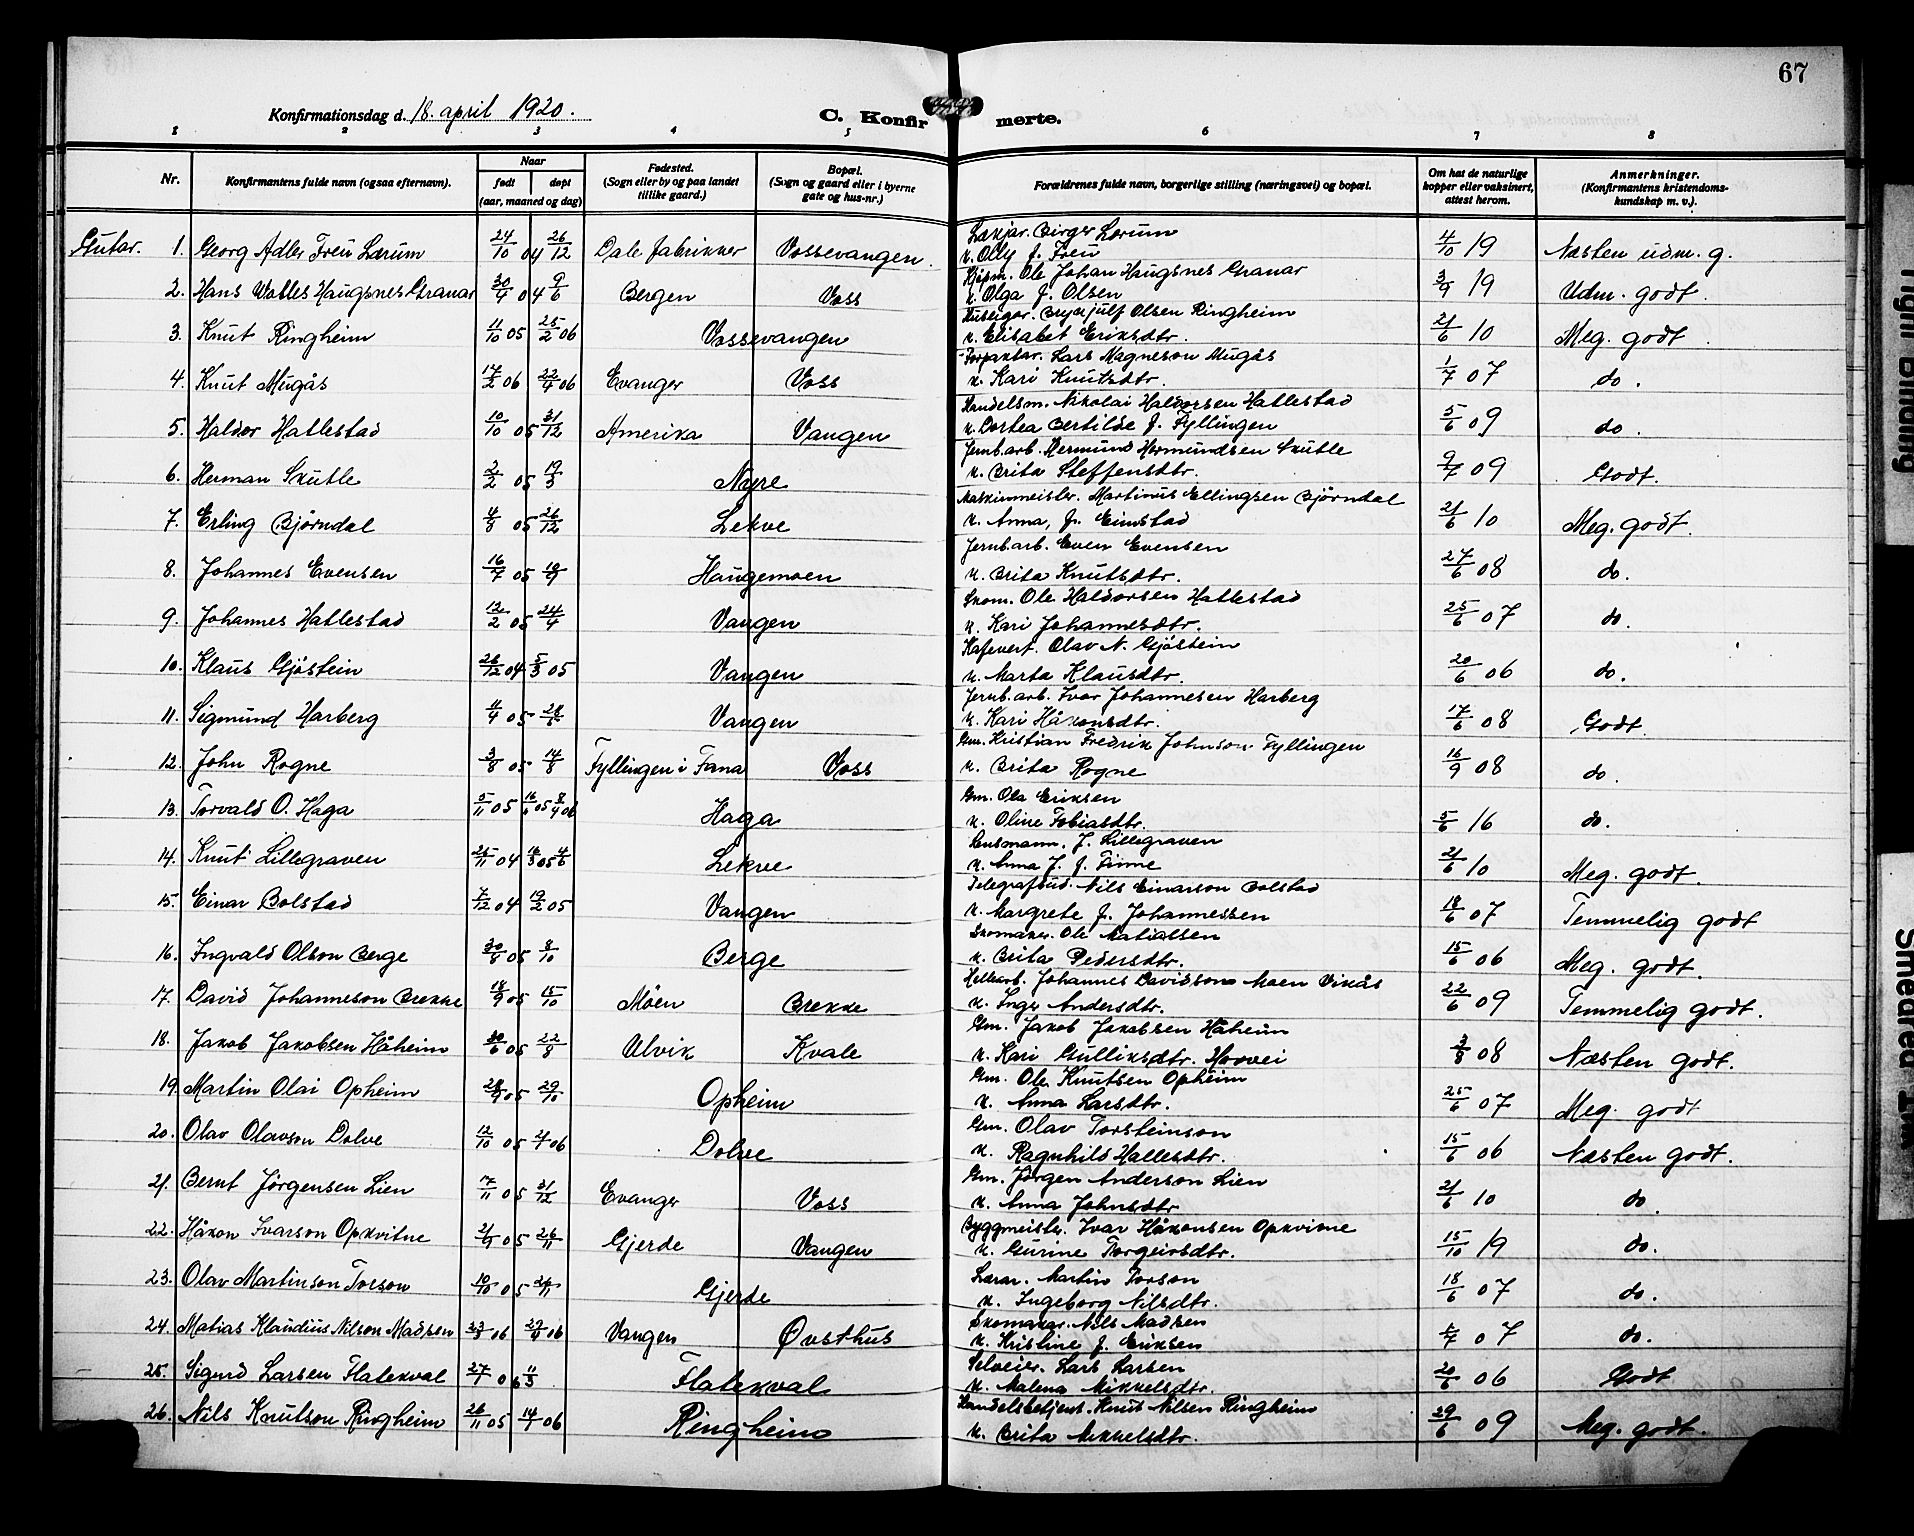 67
Konfirmationsdag d. 18. april 1920.
C. Konfirmerte.
1 2 3 4 5 6 7 8
Nr. Konfirmantens fulde navn (ogsaa efternavn). Naar født døpt (aar, maaned og dag) Fødested. (Sogn eller by og paa landet tillike gaard.) Bopæl. (Sogn og gaard eller i byerne gate og hus-nr.) Forældrenes fulde navn, borgerlige stilling (næringsvei) og bopæl. Om hat de naturlige kopper eller vaksinert, attest herom. Anmerkninger. (Konfirmantens kristendomskundskap m. v.).
Gutar. 1. Georg Adler Freu Lærum 24/10 04 26/12 Dale fabrikker Vossevangen. Birger Lærum 4/10 19 Næsten udm. g.
k. Olly f. Freu
2. Hans Wolles Haugsnes Granar 30/4 04 9/6 Bergen Voss Kjøpm. Ole Johan Haugsnes Granar 3/9 19 Udm. godt.
k. Olga f. Olsen
3. Knut Ringheim 11/10 05 25/2 06 Vossevangen Huseigar. Brynjulf Olsen Ringheim 21/6 10 Meg. godt.
k. Elisabet Eriksdtr.
4. Knut Mugås 17/2 06 22/4 06 Evanger Voss Forpaktar. Lars Magneson Mugås 1/7 07 do.
k. Kari Knutsdtr.
5. Haldor Hatlestad 10/10 05 31/12 Amerika Vangen Handelsm. Nikolai Haldorsen Hatlestad 5/6 09 do.
k. Dortea Bertilde f. Fyllingen
6. Herman Skutle 2/2 05 19/3 Nyre Jernb.arb. Hermund Hermundsen Skutle 9/7 09 Godt.
k. Brita Steffensdtr.
7. Erling Bjørndal 4/8 05 26/12 Lekve Maskinmeister. Martinus Ellingsen Bjørndal 21/6 10 Meg. godt.
k. Anna, f. Eimstad
8. Johannes Evensen 16/7 05 10/9 Haugemoen Jernb.arb. Even Evensen 27/6 08 do.
k. Brita Knutsdtr.
9. Johannes Hatlestad 12/2 05 24/4 Vangen Skom. Ole Haldorsen Hatlestad 25/6 07 do.
k. Kari Johannesdtr.
10. Klaus Gjøstein 26/12 04 5/3 05 Vangen Kafevert. Olav N. Gjøstein 20/6 06 do.
k. Marta Klausdtr.
11. Sigmund Harberg 11/4 05 Vangen Jernb.arb. Ivar Johannesen Harberg 17/6 08 Godt.
k. Kari Håkonsdtr.
12. John Rogne 3/8 05 14/8 Fyllingen i Fana Voss Gm. Kristian Fredrik Johnson Fyllingen 16/9 08 do.
k. Brita Rogne
13. Torvald O. Haga 5/11 05 16/6 05 8/4 06 Haga Gm. Ola Eriksen 5/6 16 do.
k. Oline Tobiasdtr.
14. Knut Lillegraven 25/11 04 Lekve Lensmann. J. Lillegraven 21/6 10 Meg. godt.
k. Anna J. f. Finne
15. Einar Bolstad 7/12 04 19/2 05 Vangen Telegrafbud. Nils Einarson Bolstad 18/6 07 Temmelig godt
k. Margrete f. Johannessen
16. Ingvald Olson Berge 30/8 05 8/10 Berge Skomaker. Ole Matiassen 15/6 06 Meg. godt.
k. Brita Pedersdtr.
17. David Johanneson Brekke 18/9 05 15/10 Möen Brekke Hellearb. Johannes Davidson Moen 22/6 09 Temmelig godt.
k. Inger Andersdtr.
18. Jakob Jakobsen Håheim 30/6 05 22/8 Ulvik Kvale Gm. Jakob Jakobsen Håheim 3/8 08 Næsten godt.
k. Kari Gulliksdtr. Hovvei
19. Martin Olai Opheim 28/9 05 29/10 Opheim Gm. Ole Knutsen Opheim 25/6 07 Meg. godt
k. Anna Larsdtr.
20. Olav Olavson Dolve 12/10 05 2/1 06 Dolve Gm. Olav Torsteinson 15/6 06 Næsten godt.
k. Ragnhild Hallesdtr.
21. Bernt Jörgensen Lien 17/11 05 31/12 Evanger Voss Gm. Jørgen Anderson Lien 21/6 10 do.
k. Anna Johnsdtr
22. Håkon Ivarson Opkvitne 21/9 05 26/11 Gjerde Vangen Byggmeister. Ivar Håkonsen Opkvitne 15/10 19 do.
k. Gurine Torgeirsdtr.
23. Olav Martinson Torson 10/10 05 26/11 Gjerde Lærar. Martin Torson 18/6 07 do.
k. Ingeborg Nilsdtr.
24. Matias Klaudius Nilson Madsen 23/3 06 29/4 06 Vangen Øvsthus Skomakar. Nils Madsen 07 do.
k. Kristine f. Eriksen
25. Sigurd Larsen Flatekval 27/7 06 Flatekval Selveier. Lars Larsen 20/6 06 Godt
k. Malena Mikkelsdtr.
26. Nils Knutson Ringheim 26/11 05 14/1 06 Ringheim Handelsbetjent. Knut Nilsen Ringheim 29/6 09 Meg. godt.
k. Brita Mikkelsdtr.
Tight Binding